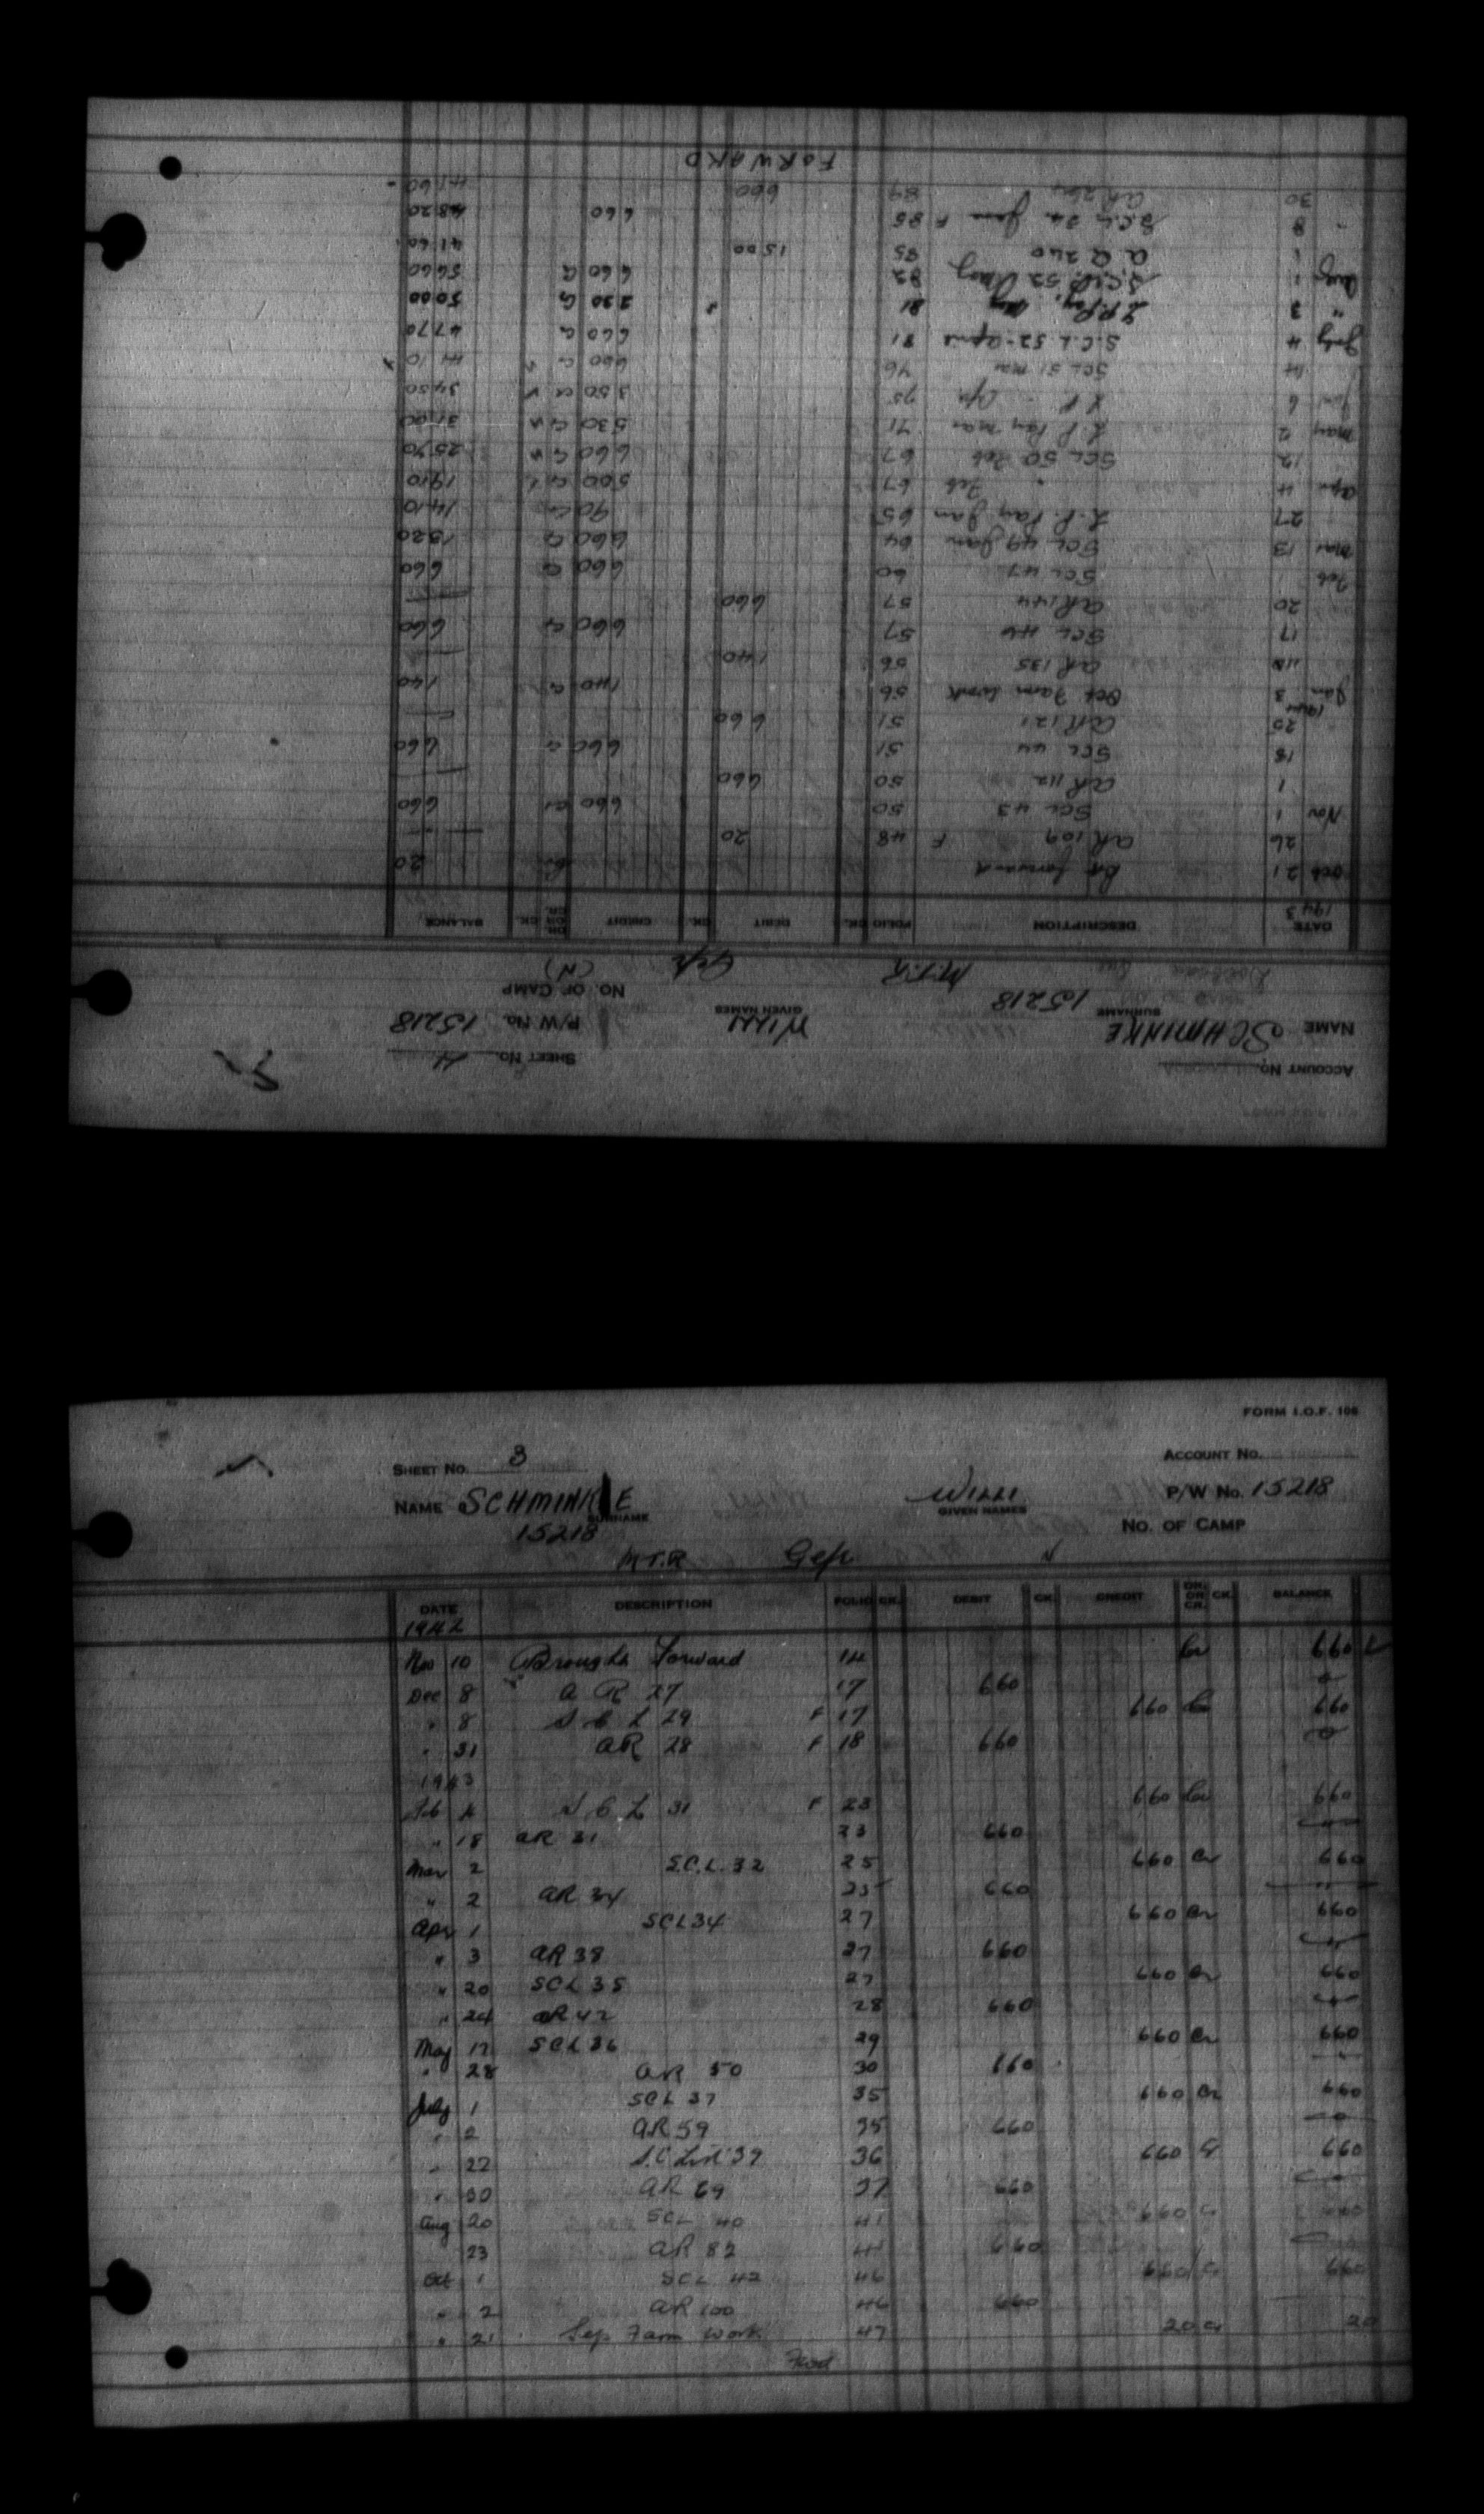 ACCOUNT No.
SHEET No. 4
NAME SCHMINKE WILLI P/W No. 15218
SURNAME GIVEN NAMES
15218 M.T.R Gefr NO. OF CAMP
(N)
DATE DESCRIPTION FOLIO CK. DEBIT CK. CREDIT DR. OR CR. CK. BALANCE
1943
Oct 21 Bt forward Cr 20
26 AR 109 F 48 20
Nov 1 SCL 43 50 660 Cr 660
1 AR 112 50 660
18 SCL 44 51 660 Cr 660
20 AR 121 51 660
1944
Jan 3 Oct Farm Work 56 140 Cr 140
AR 135 56 140
17 SCL 46 57 660 Cr 660
20 AR 144 57 660
Feb 1 SCL 47 60 660 Cr 660
Mar 13 SCL 49 Jan 64 660 Cr 1320
27 L.P. Pay Jan 65 90 Cr 1410
Apr 4 " Feb 67 500 Cr 1910
12 SCL 50 Feb 67 660 Cr 2570
May 2 L.P. Pay Mar 71 530 Cr 3100
6 L P " Apr 75 350 Cr 3450
14 SCL 51 Mar 76 660 Cr 4110
July 4 S.C.L. 52 - April 81 660 Cr 4770
" 3 L.P. Pay, May 81 230 Cr 5000
Aug 1 S.C.L. 53 82 660 Cr 5660
1 A R 240 85 1500 4160
" 8 S.C.L. 54 June F 85 660 4820
30 AR 264 89 660 4160
FORWARD
FORM I.O.F. 108
SHEET No. 3 ACCOUNT No.
NAME SCHMINKE WILLI P/W No. 15218
SURNAME GIVEN NAMES
15218 NO. OF CAMP
M.T.R Gefr N
DATE DESCRIPTION FOLIO CK. DEBIT CK. CREDIT DR. OR CR. CK. BALANCE
1942
Nov 10 Brought Forward 14 Cr 660
Dec 8 A R 27 17 660 0
" 8 S C L 29 F 17 660 Cr 660
" 31 AR 28 F 18 660 0
1943
Feb 4 S C L 31 F 23 660 Cr 660
" 18 AR 31 23 660
Mar 2 S.C.L. 32 25 660 Cr 660
" 2 AR 34 25 660
Apr 1 SCL 34 27 660 Cr 660
" 3 AR 38 27 660
" 20 SCL 35 27 660 Cr 660
" 24 AR 42 28 660
May 17 SCL 36 29 660 Cr 660
" 28 AR 50 30 660
July 1 SCL 37 35 660 Cr 660
" 2 AR 59 35 660 0
" 22 S.C List 39 36 660 Cr 660
" 30 AR 69 37 660
Aug 20 SCL 40 41 660 Cr 660
23 AR 82 41 660
Oct 1 SCL 42 46 660 Cr 660
" 2 AR 100 46 660
" 21 Sep Farm Work 47 20 Cr 20
Fwd